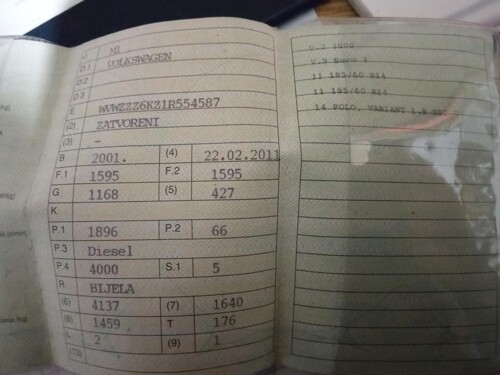 J M1
D.1 VOLKSWAGEN
D.2
D.3
E WVWZZZ6KZ1R554587
(2) ZATVORENI
(3) -
B 2001. (4) 22.02.2011
F.1 1595 F.2 1595
G 1168 (5) 427
K
P.1 1896 P.2 66
P.3 Diesel
P.4 4000 S.1 5
R BIJELA
(6) 4137 (7) 1640
(8) 1459 T 176
L 2 (9) 1
(13)
U.2 3000
V.9 Euro 3
11 185/60 R14
11 185/60 R14
14 POLO, VARIANT 1.9